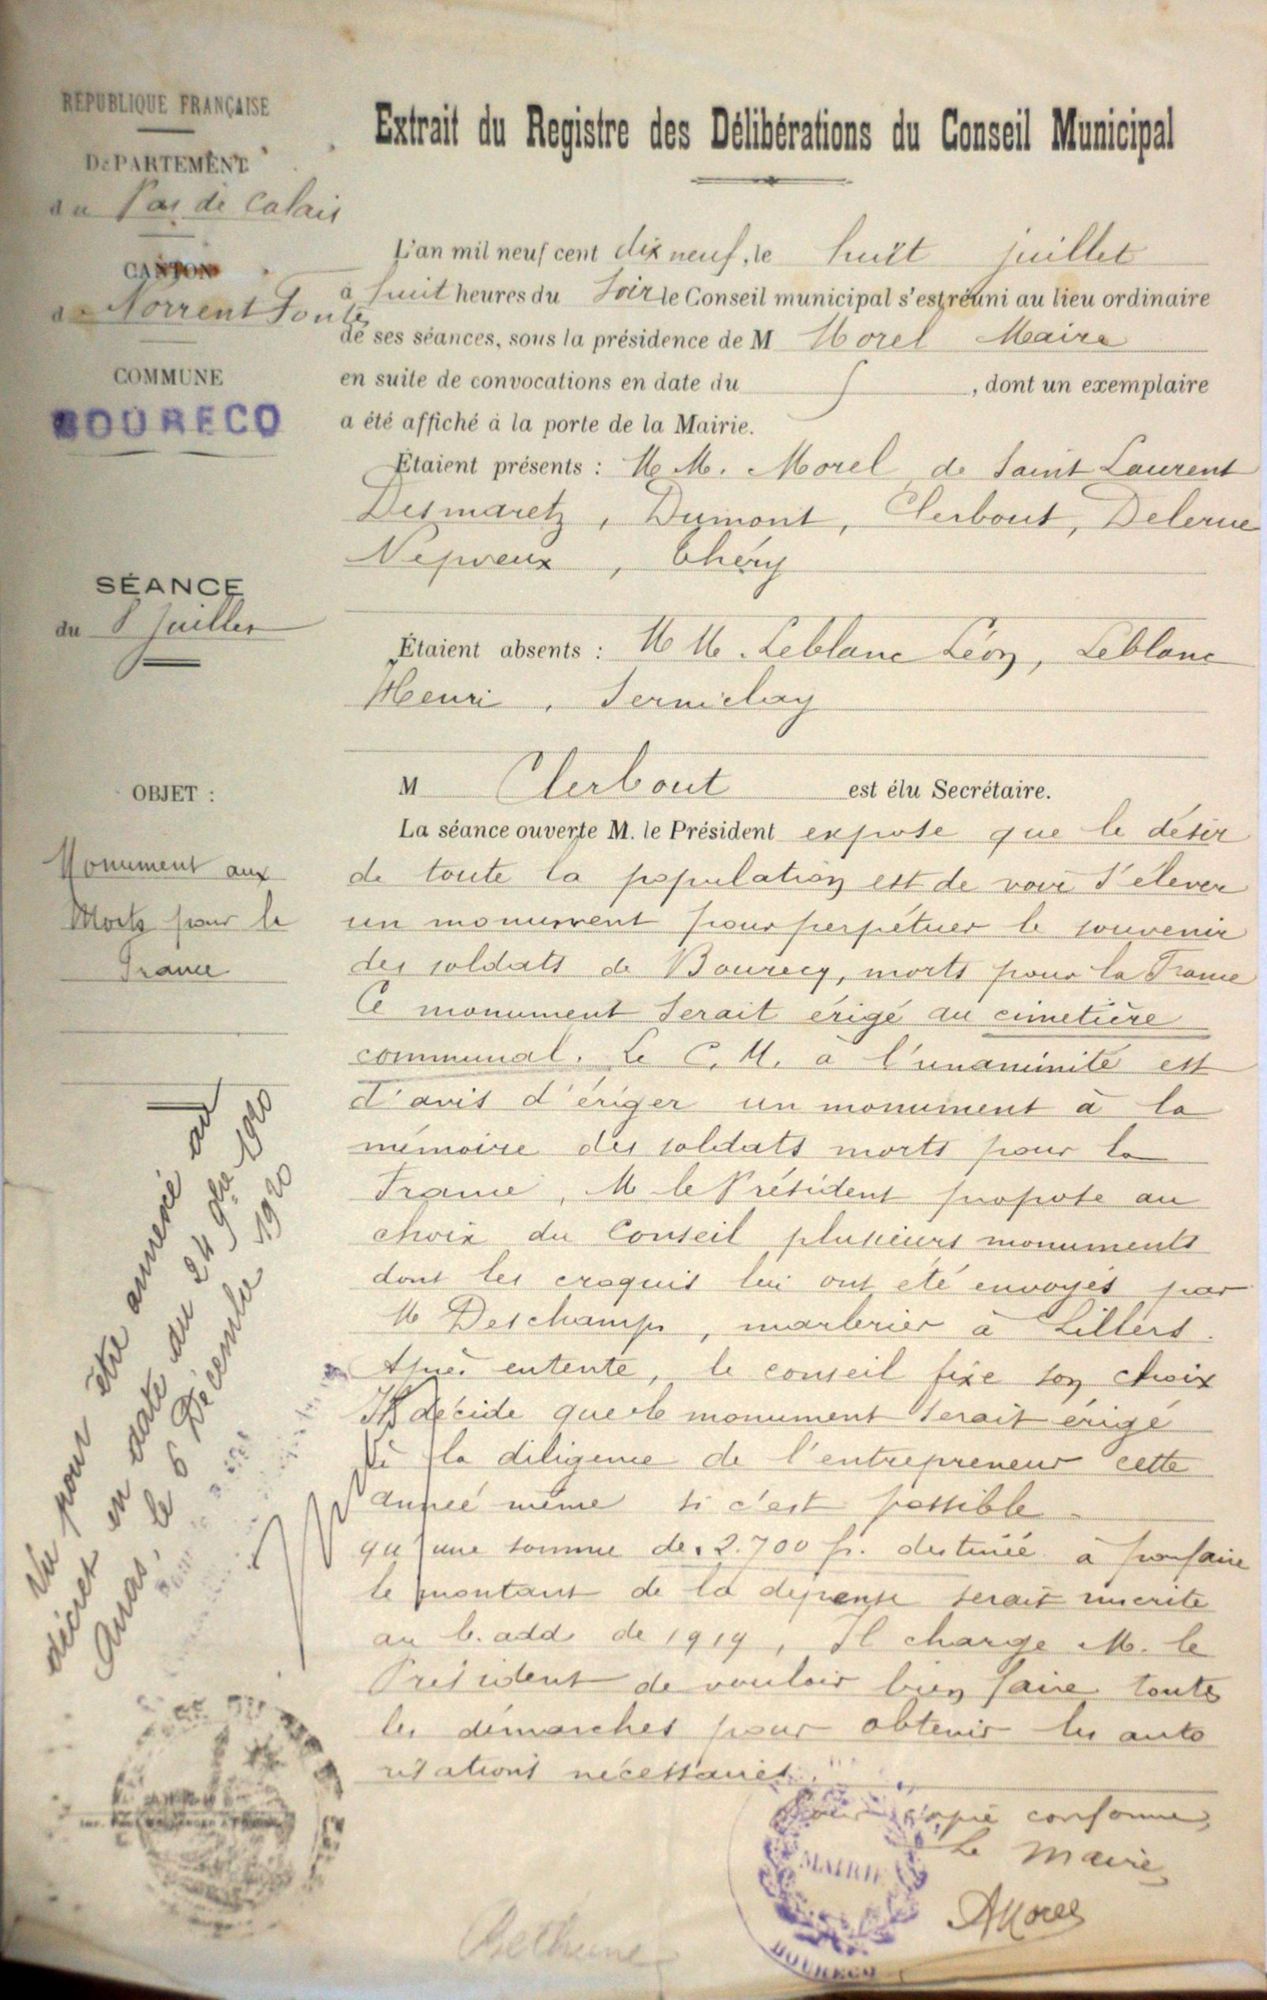 RÉPUBLIQUE FRANÇAISE
DÉPARTEMENT
du Pas de Calais
CANTON
de Norrent Fontes
COMMUNE
BOURECQ
SÉANCE
du 8 juillet
OBJET :
Monument aux
Morts pour la
France
Vu pour être annexé au
décret en date du 24 9bre 1920
Arras, le 6 Décembre 1920
Extrait du Registre des Délibérations du Conseil Municipal
L'an mil neuf cent dix neuf, le huit juillet
à huit heures du Soir le Conseil municipal s'est réuni au lieu ordinaire
de ses séances, sous la présidence de M Morel Maire
en suite de convocations en date du , dont un exemplaire
a été affiché à la porte de la Mairie.
Étaient présents : M.M. Morel, de Saint Laurent
Desmaretz, Dumont, Clerbout, Delerue
Nepveux, Théry
Étaient absents : M.M. Leblanc Léon, Leblanc
Henri,
M Clerbout est élu Secrétaire.
La séance ouverte M. le Président expose que le désir
de toute la population est de voir s'élever
un monument pour perpétuer le souvenir
des soldats de Bourecq, morts pour la France
Ce monument serait érigé au cimetière
communal. Le C. M. à l'unaminité est
d'avis d'ériger un monument à la
mémoire des soldats morts pour la
France, M le Président propose au
choix du Conseil plusieurs monuments
dont les croquis lui ont été envoyés par
M Deschamps, marbrier à Lillers.
Après entente, le conseil fixe son choix
Il décide que le monument serait érigé
à la diligence de l'entrepreneur cette
année même si c'est possible
qu'une somme de 2.700 fr. destinée à parfaire
le montant de la dépense serait inscrite
au b. add. de 1919, Il charge M. le
Président de vouloir bien faire toutes
les démarches pour obtenir les auto
risations nécessaires.
Pour copie conforme,
Le Maire
A Morel
MAIRIE
BOURECQ
Béthune